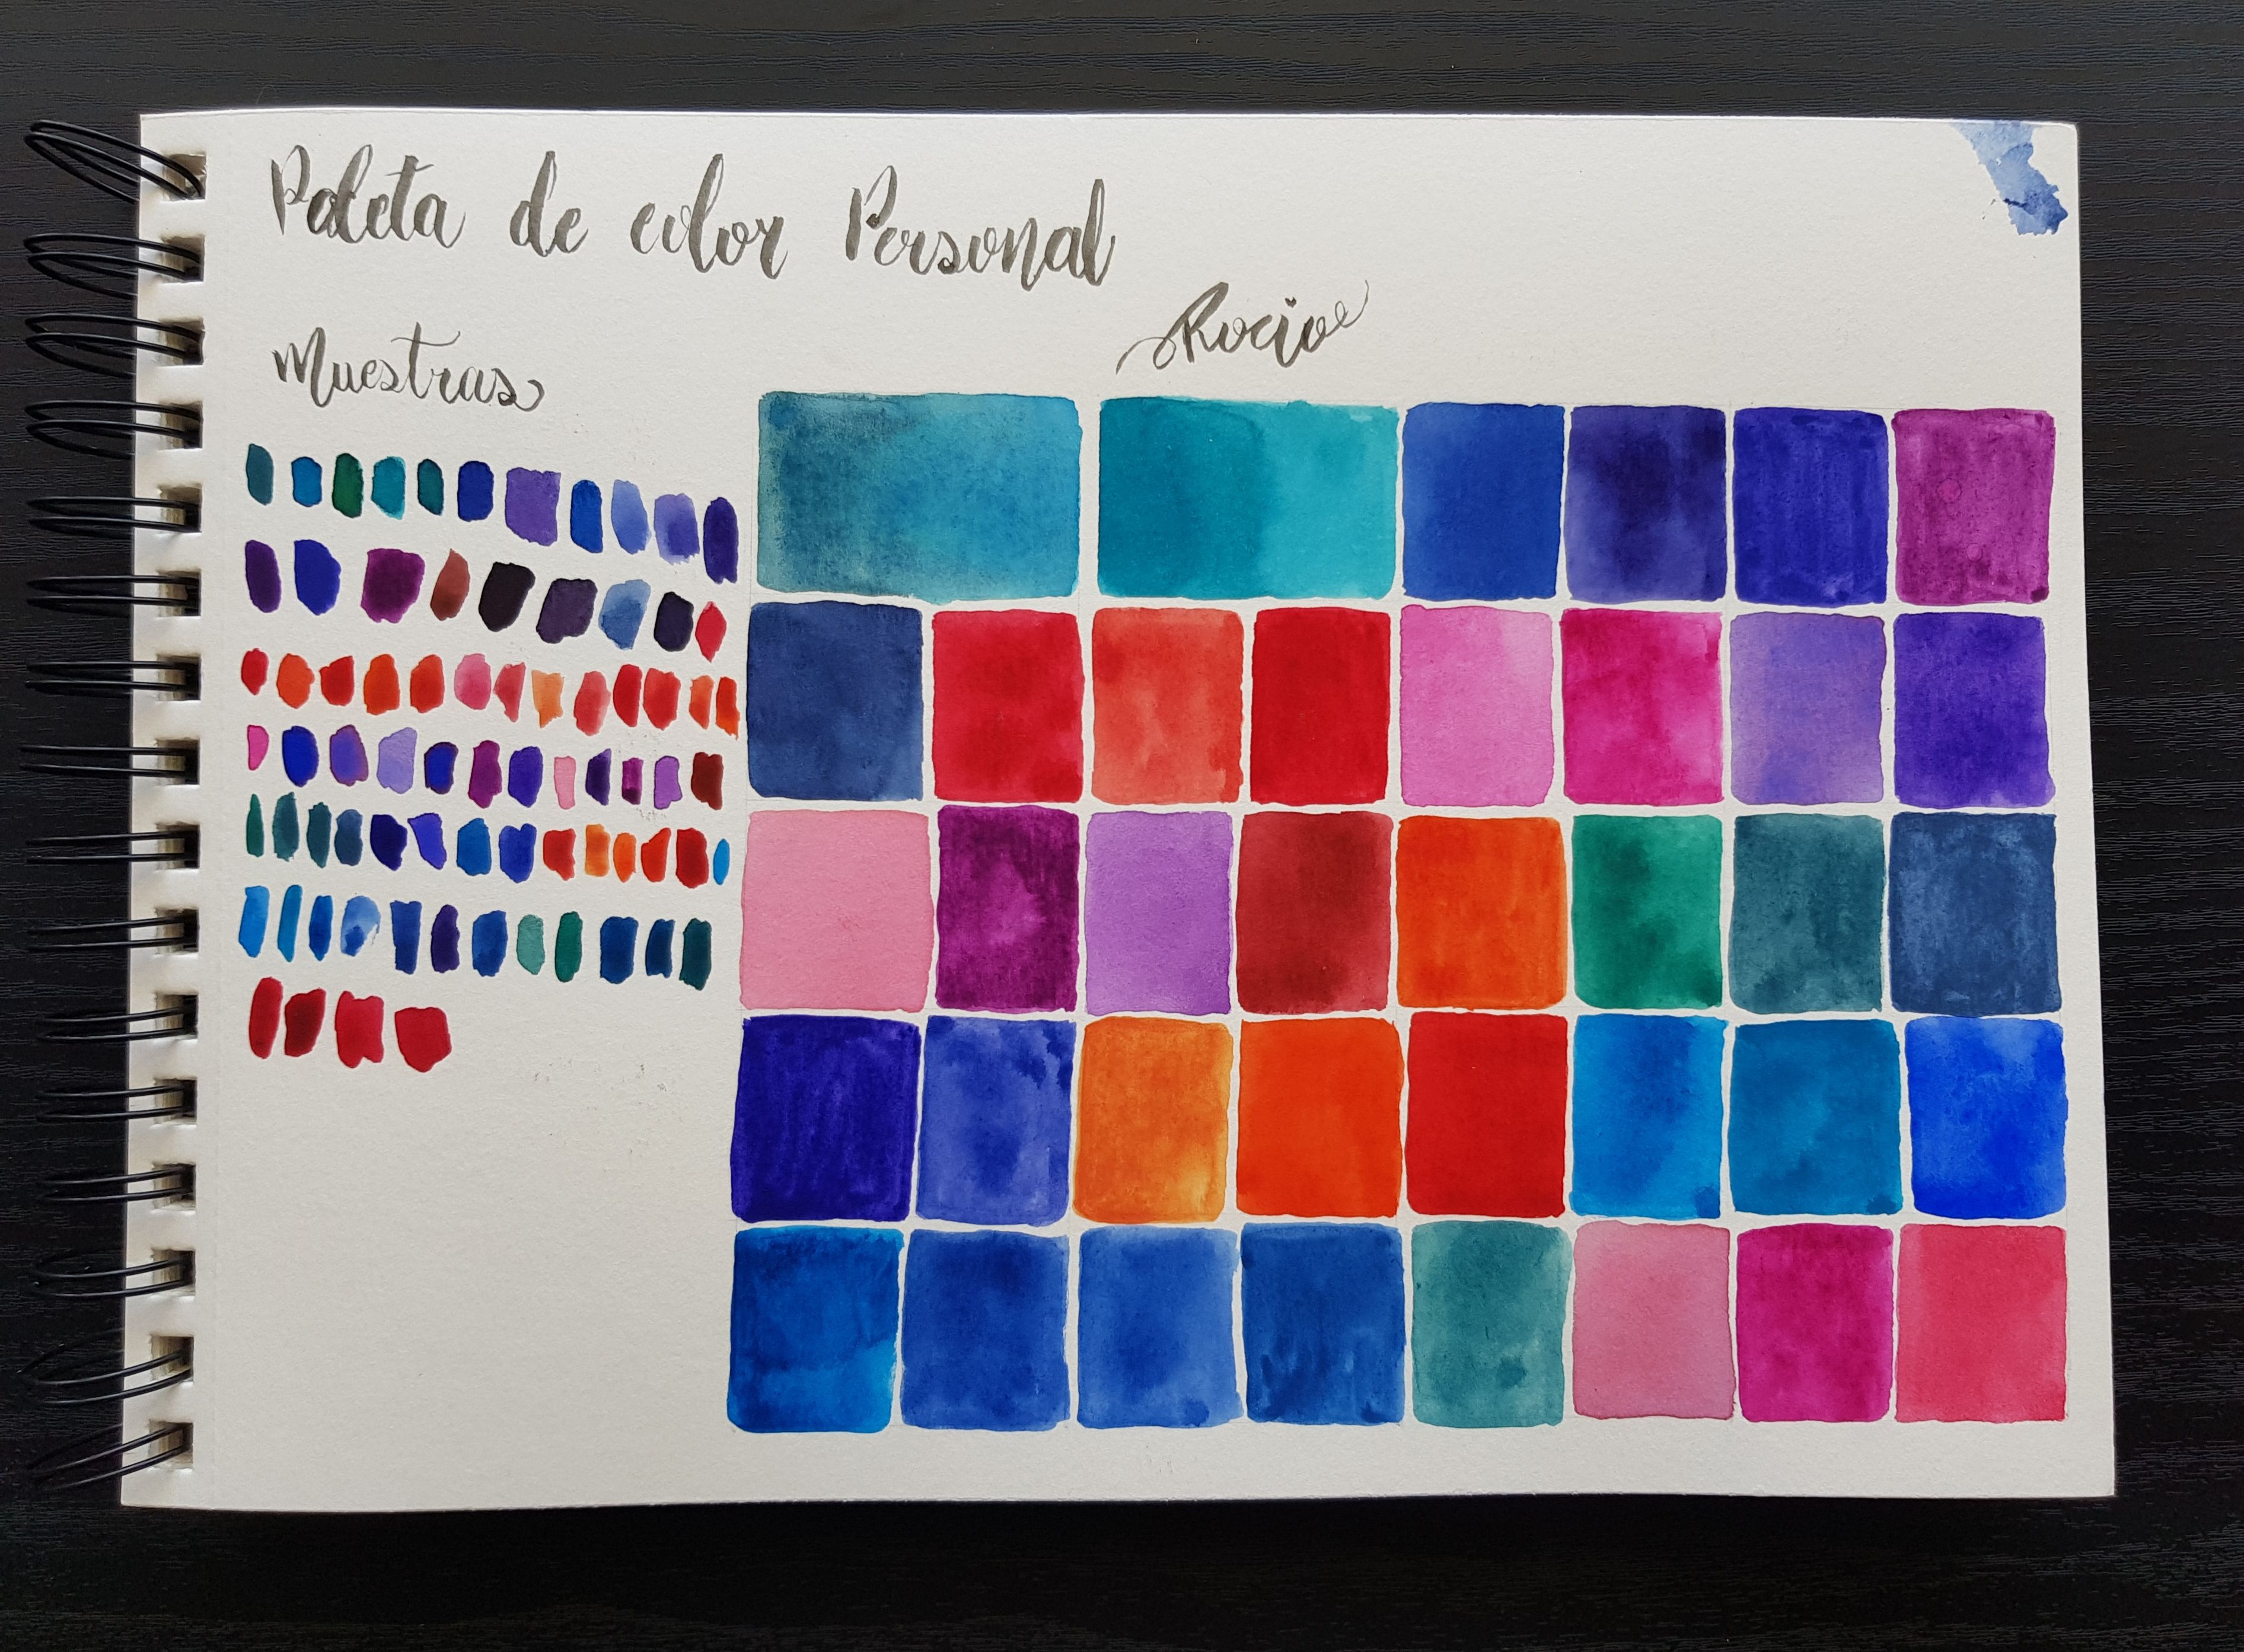 Paleta de color Personal
Rocio
Muestras